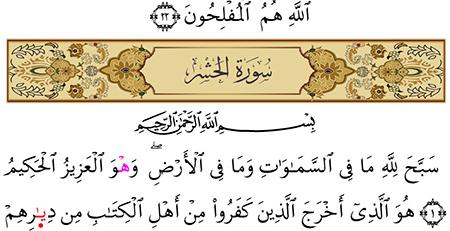 ٱللَّهِ هُمُ ٱلْمُفْلِحُونَ ٢٢
سُورَةُ الحَشْرِ
بِسْمِ ٱللَّهِ ٱلرَّحْمَٰنِ ٱلرَّحِيمِ
سَبَّحَ لِلَّهِ مَا فِى ٱلسَّمَٰوَٰتِ وَمَا فِى ٱلْأَرْضِۖ وَهْوَ ٱلْعَزِيزُ ٱلْحَكِيمُ
١ هُوَ ٱلَّذِىٓ أَخْرَجَ ٱلَّذِينَ كَفَرُوا۟ مِنْ أَهْلِ ٱلْكِتَٰبِ مِن دِيَٰرِهِمْ